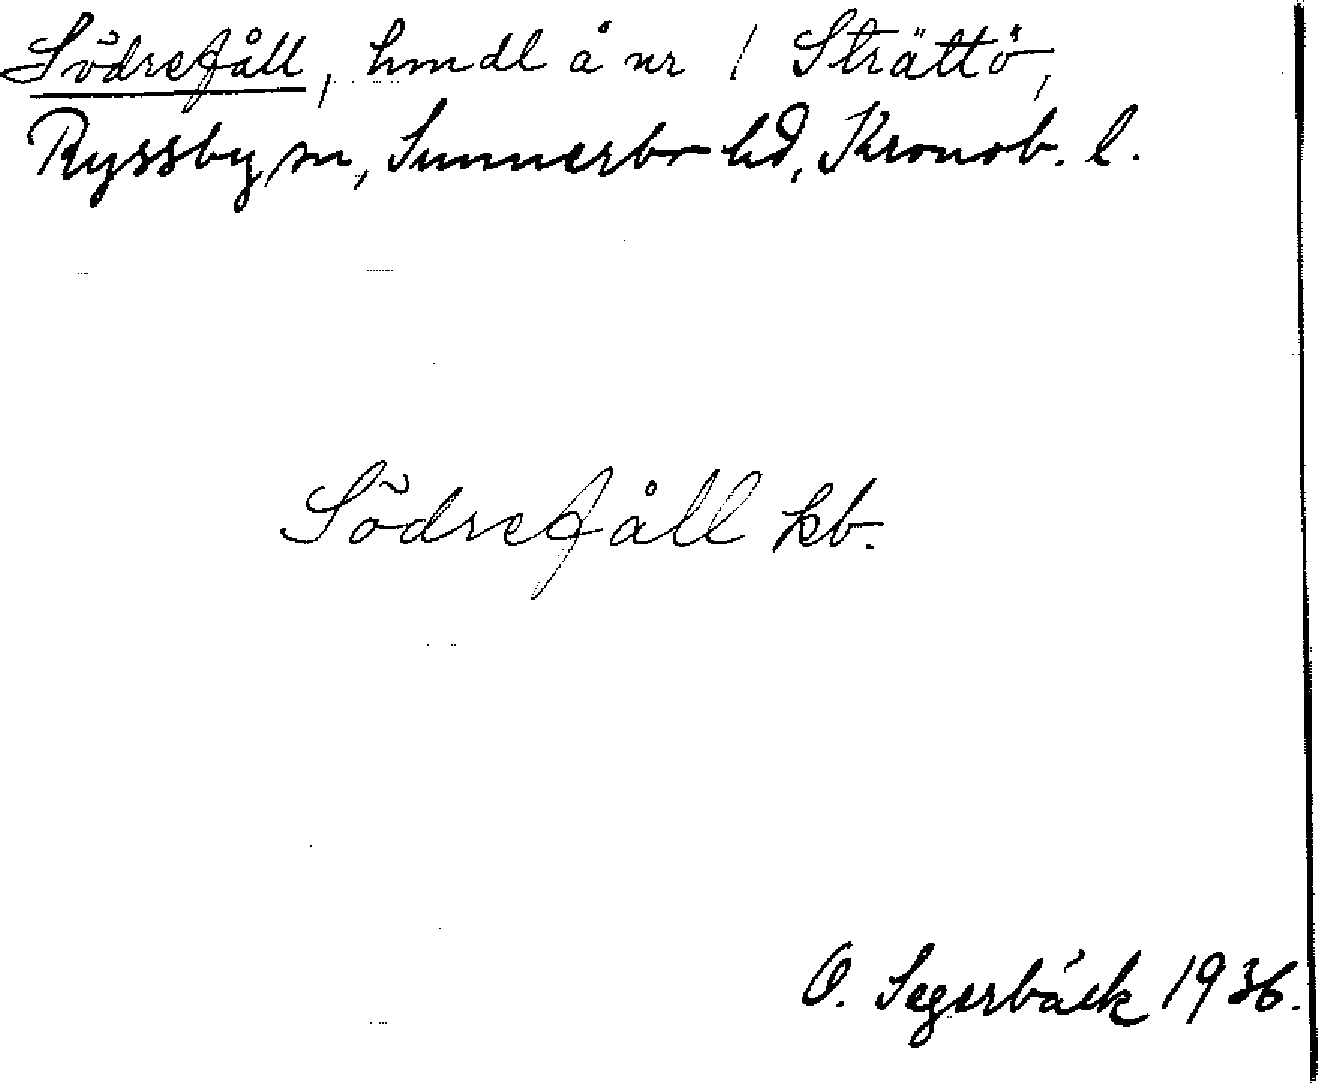 Södrefåll, hmdl å nr 1 Strättö,
Ryssby sn, Sunnerbo hd, Kronob. l.
Södrefåll kb.
O. Segerbäck 1936.